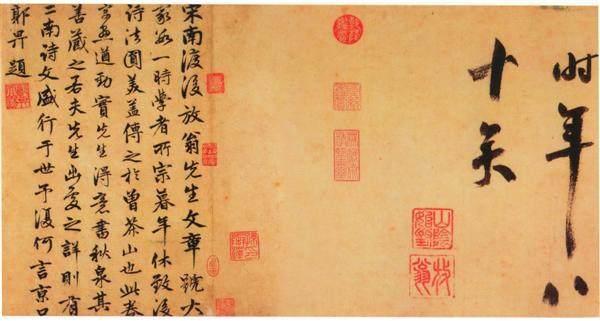 时年八
十矣
山陰始封
放翁
宋南渡後放翁先生文章號大
家為一時學者所宗暮年休致後
詩法圓美蓋傳之於曾茶山也此卷
字畫遒勁實先生得意書秋泉其
善藏之若夫先生出處之詳則有
二南诗文盛行于世予復何言京口
郭畀題